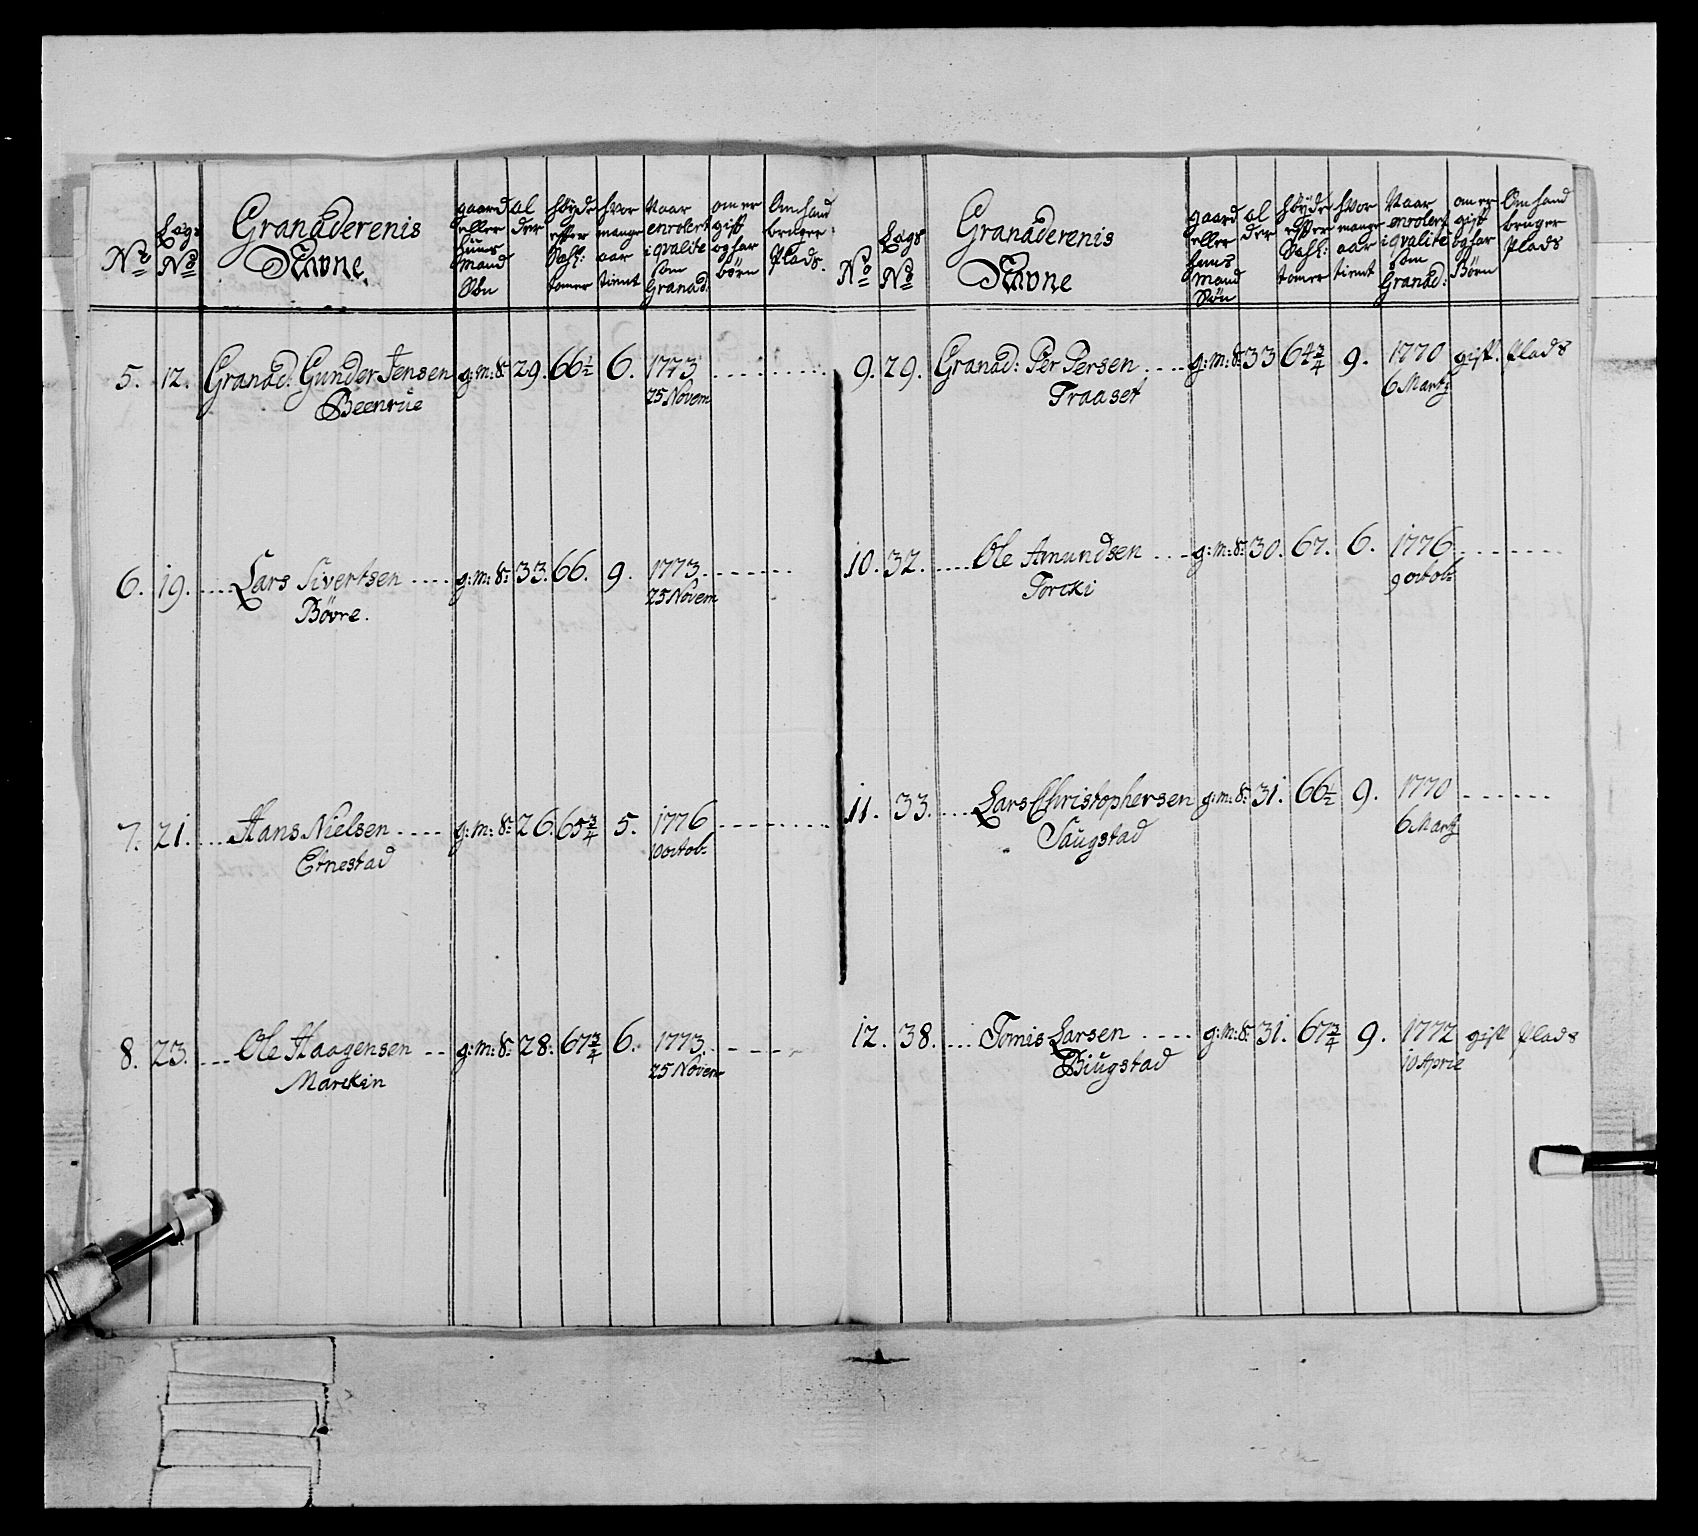 No
Lægs No
Granaderenis Navne
gaard eller huus mand Søn
al der
høyde efter Sahl: tomer
hvor mange aar tient
Naar enrolert i qvalite som Granad:
om er gift og har børn
Om hand bruger Plads.
5. 12. Granad: Gunder Jensen g: m: S: 29. 66 1/2 6. 1773
Beenrue 25 Novem
6. 19. Lars Sivertsen g: m: S: 33. 66. 9. 1773
Bøvre. 25 Novem
7. 21. Hans Nielsen g: m: S: 26. 65 3/4 5. 1776
Etnestad 10 octob:
8. 23. Ole Haagensen g: m: S: 28. 67 3/4 6. 1773
Marckin 25 Novem
No
Lægs No
Granaderenis Navne
gaard eller huus mand Søn
al der
høyde efter Sahl: tomer
hvor mange aar tient
Naar enrolert i qvalite som Granad:
om er gift og har Børn
Om hand bruger Plads
9. 29. Granad: Per Persen g: m: S: 33 64 3/4 9. 1770 gift. Plads
Traaset 6 Marty
10. 32. Ole Amundsen g: m: S: 30. 67. 6. 1776
Torcki 9 octob:
11. 33. Lars Christophersen g: m: S: 31. 66 1/2 9. 1770
Saugstad 6 Marty
12. 38. Tomis Larsen g: m: S: 31. 67 3/4 9. 1772 gift Plads
Biugstad 10 Aprie